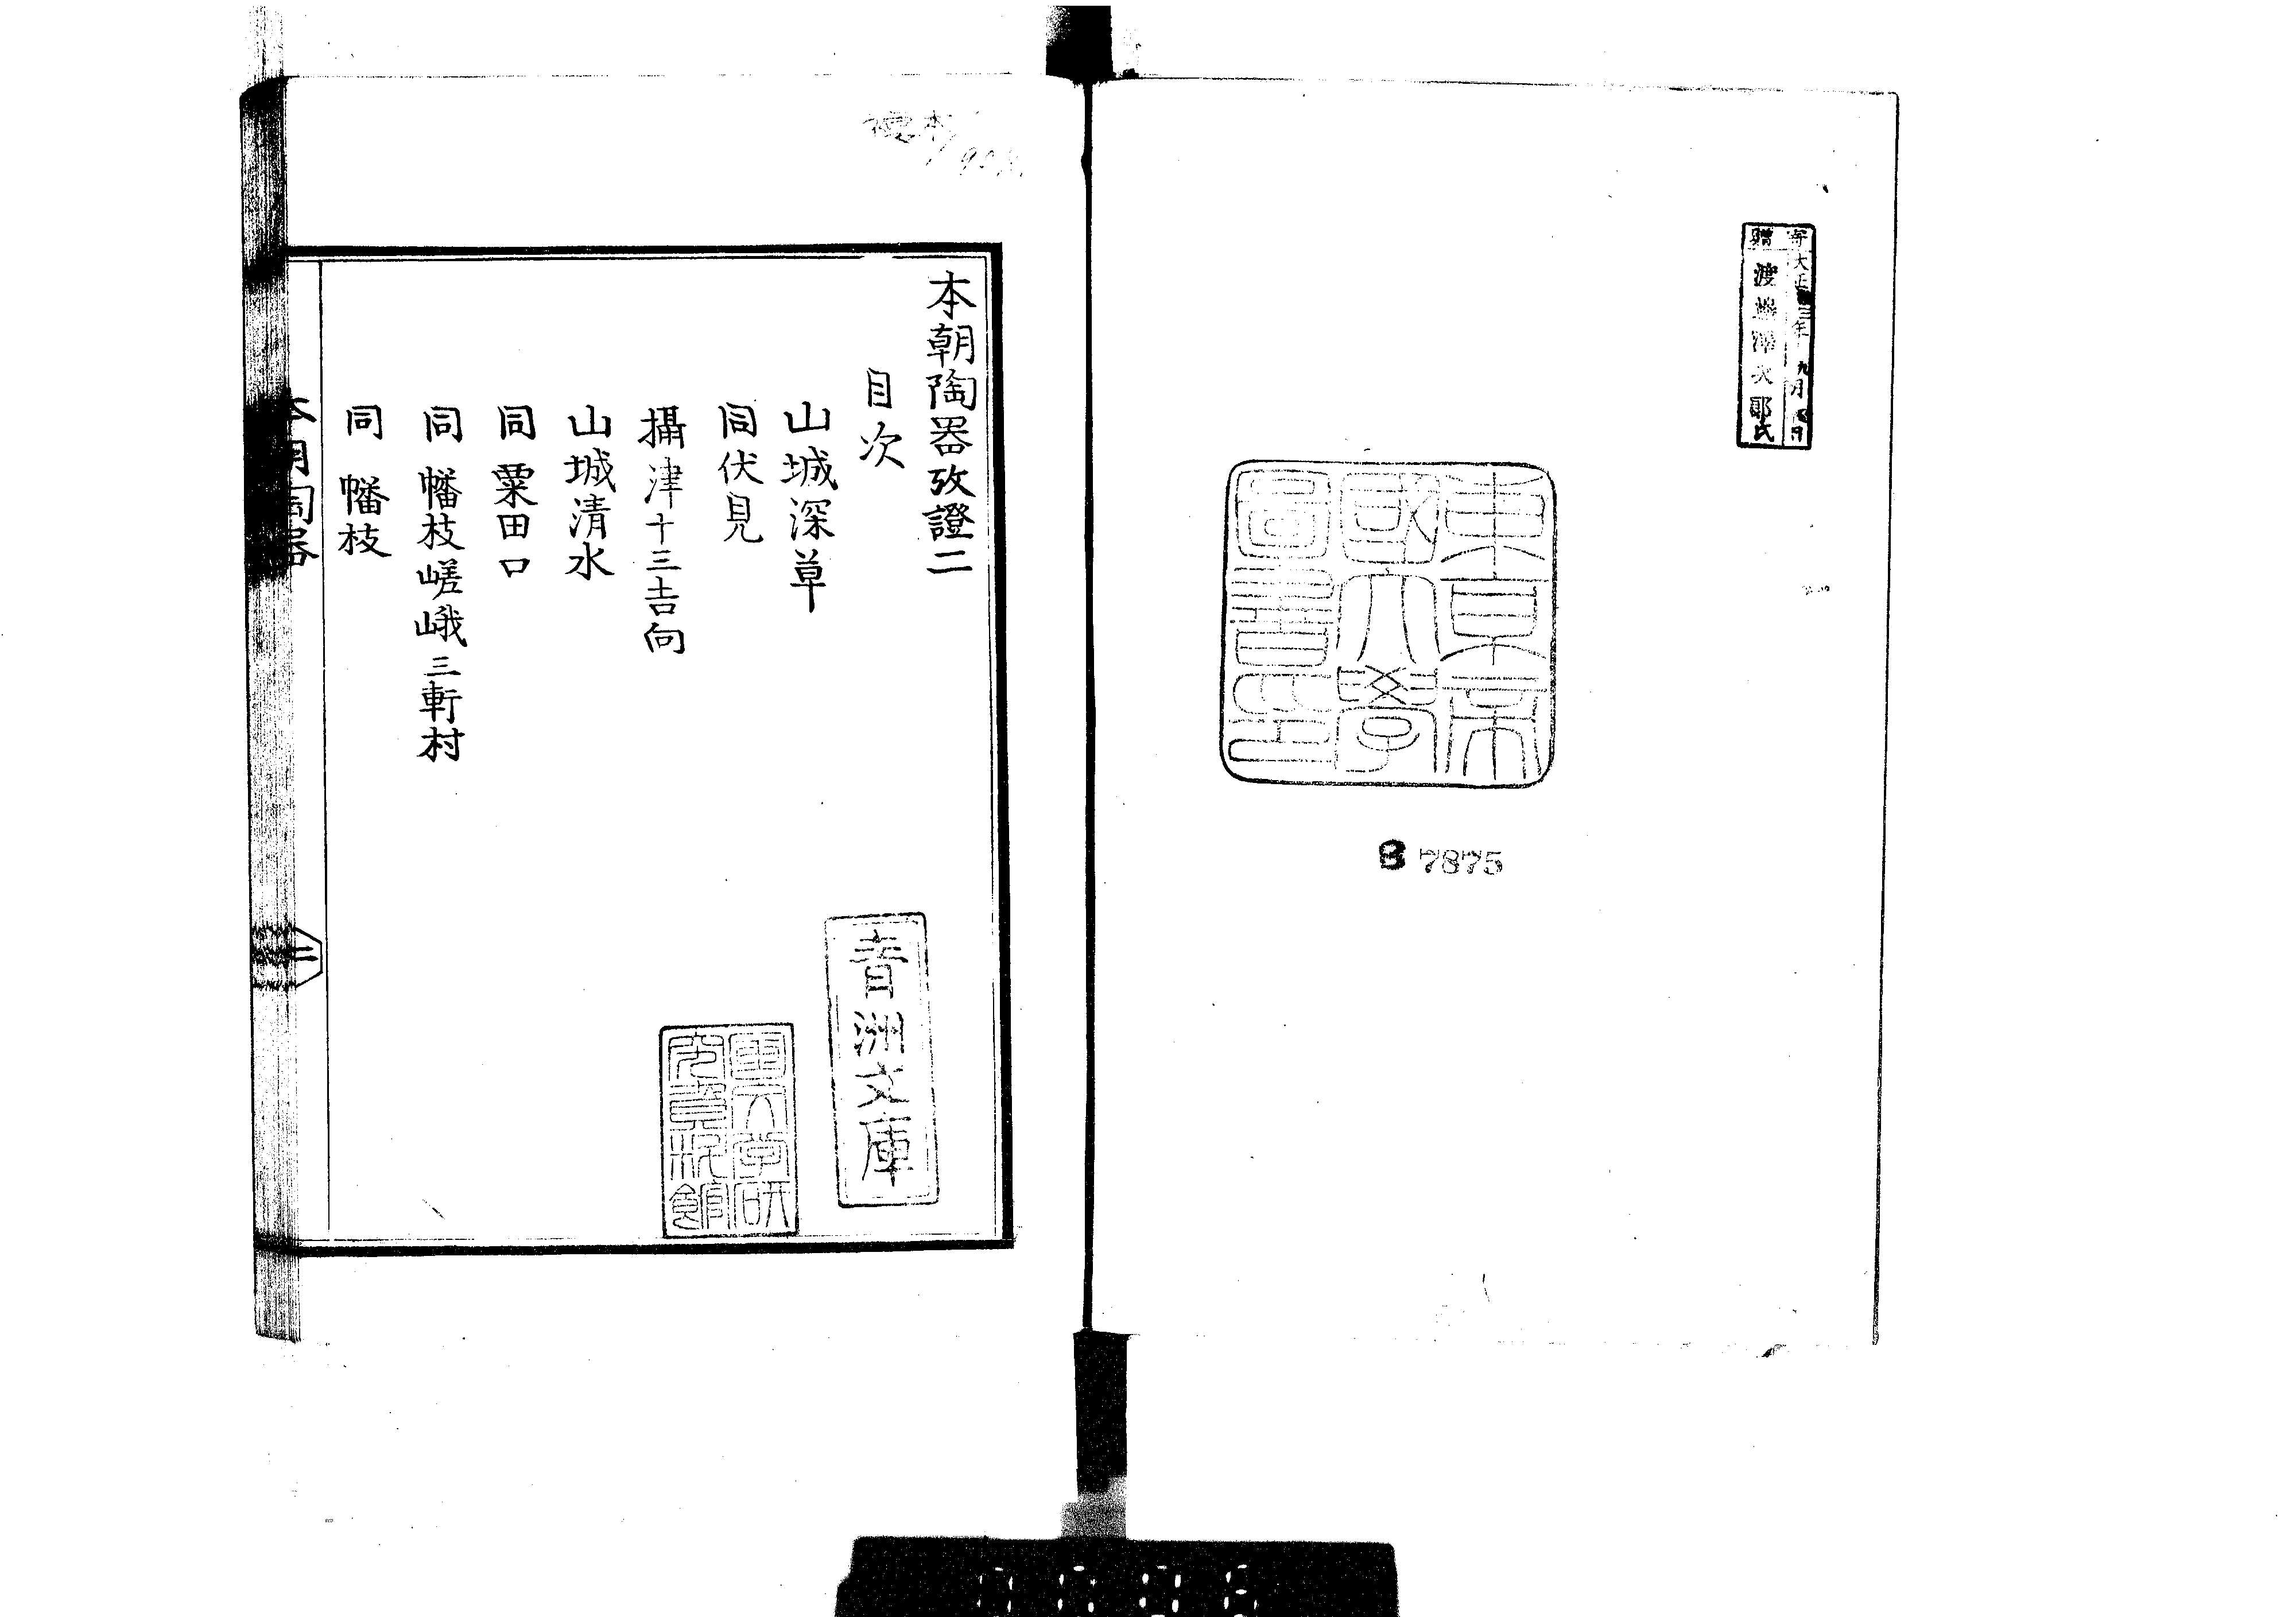 寄贈
大正三年九月
渡邊澤次郎氏
東京帝
國大學
圖書印
B 7875
本朝陶器攷證二
目次
山城深草
同伏見
攝津十三吉向
山城清水
同 粟田口
同 幡枝嵯峨三軒村
同 幡枝
青洲文庫
本朝陶器
二